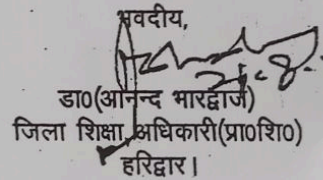 भवदीय,
डा0(आनन्द भारद्वाज)
जिला शिक्षा अधिकारी(प्रा0शि0)
हरिद्वार।